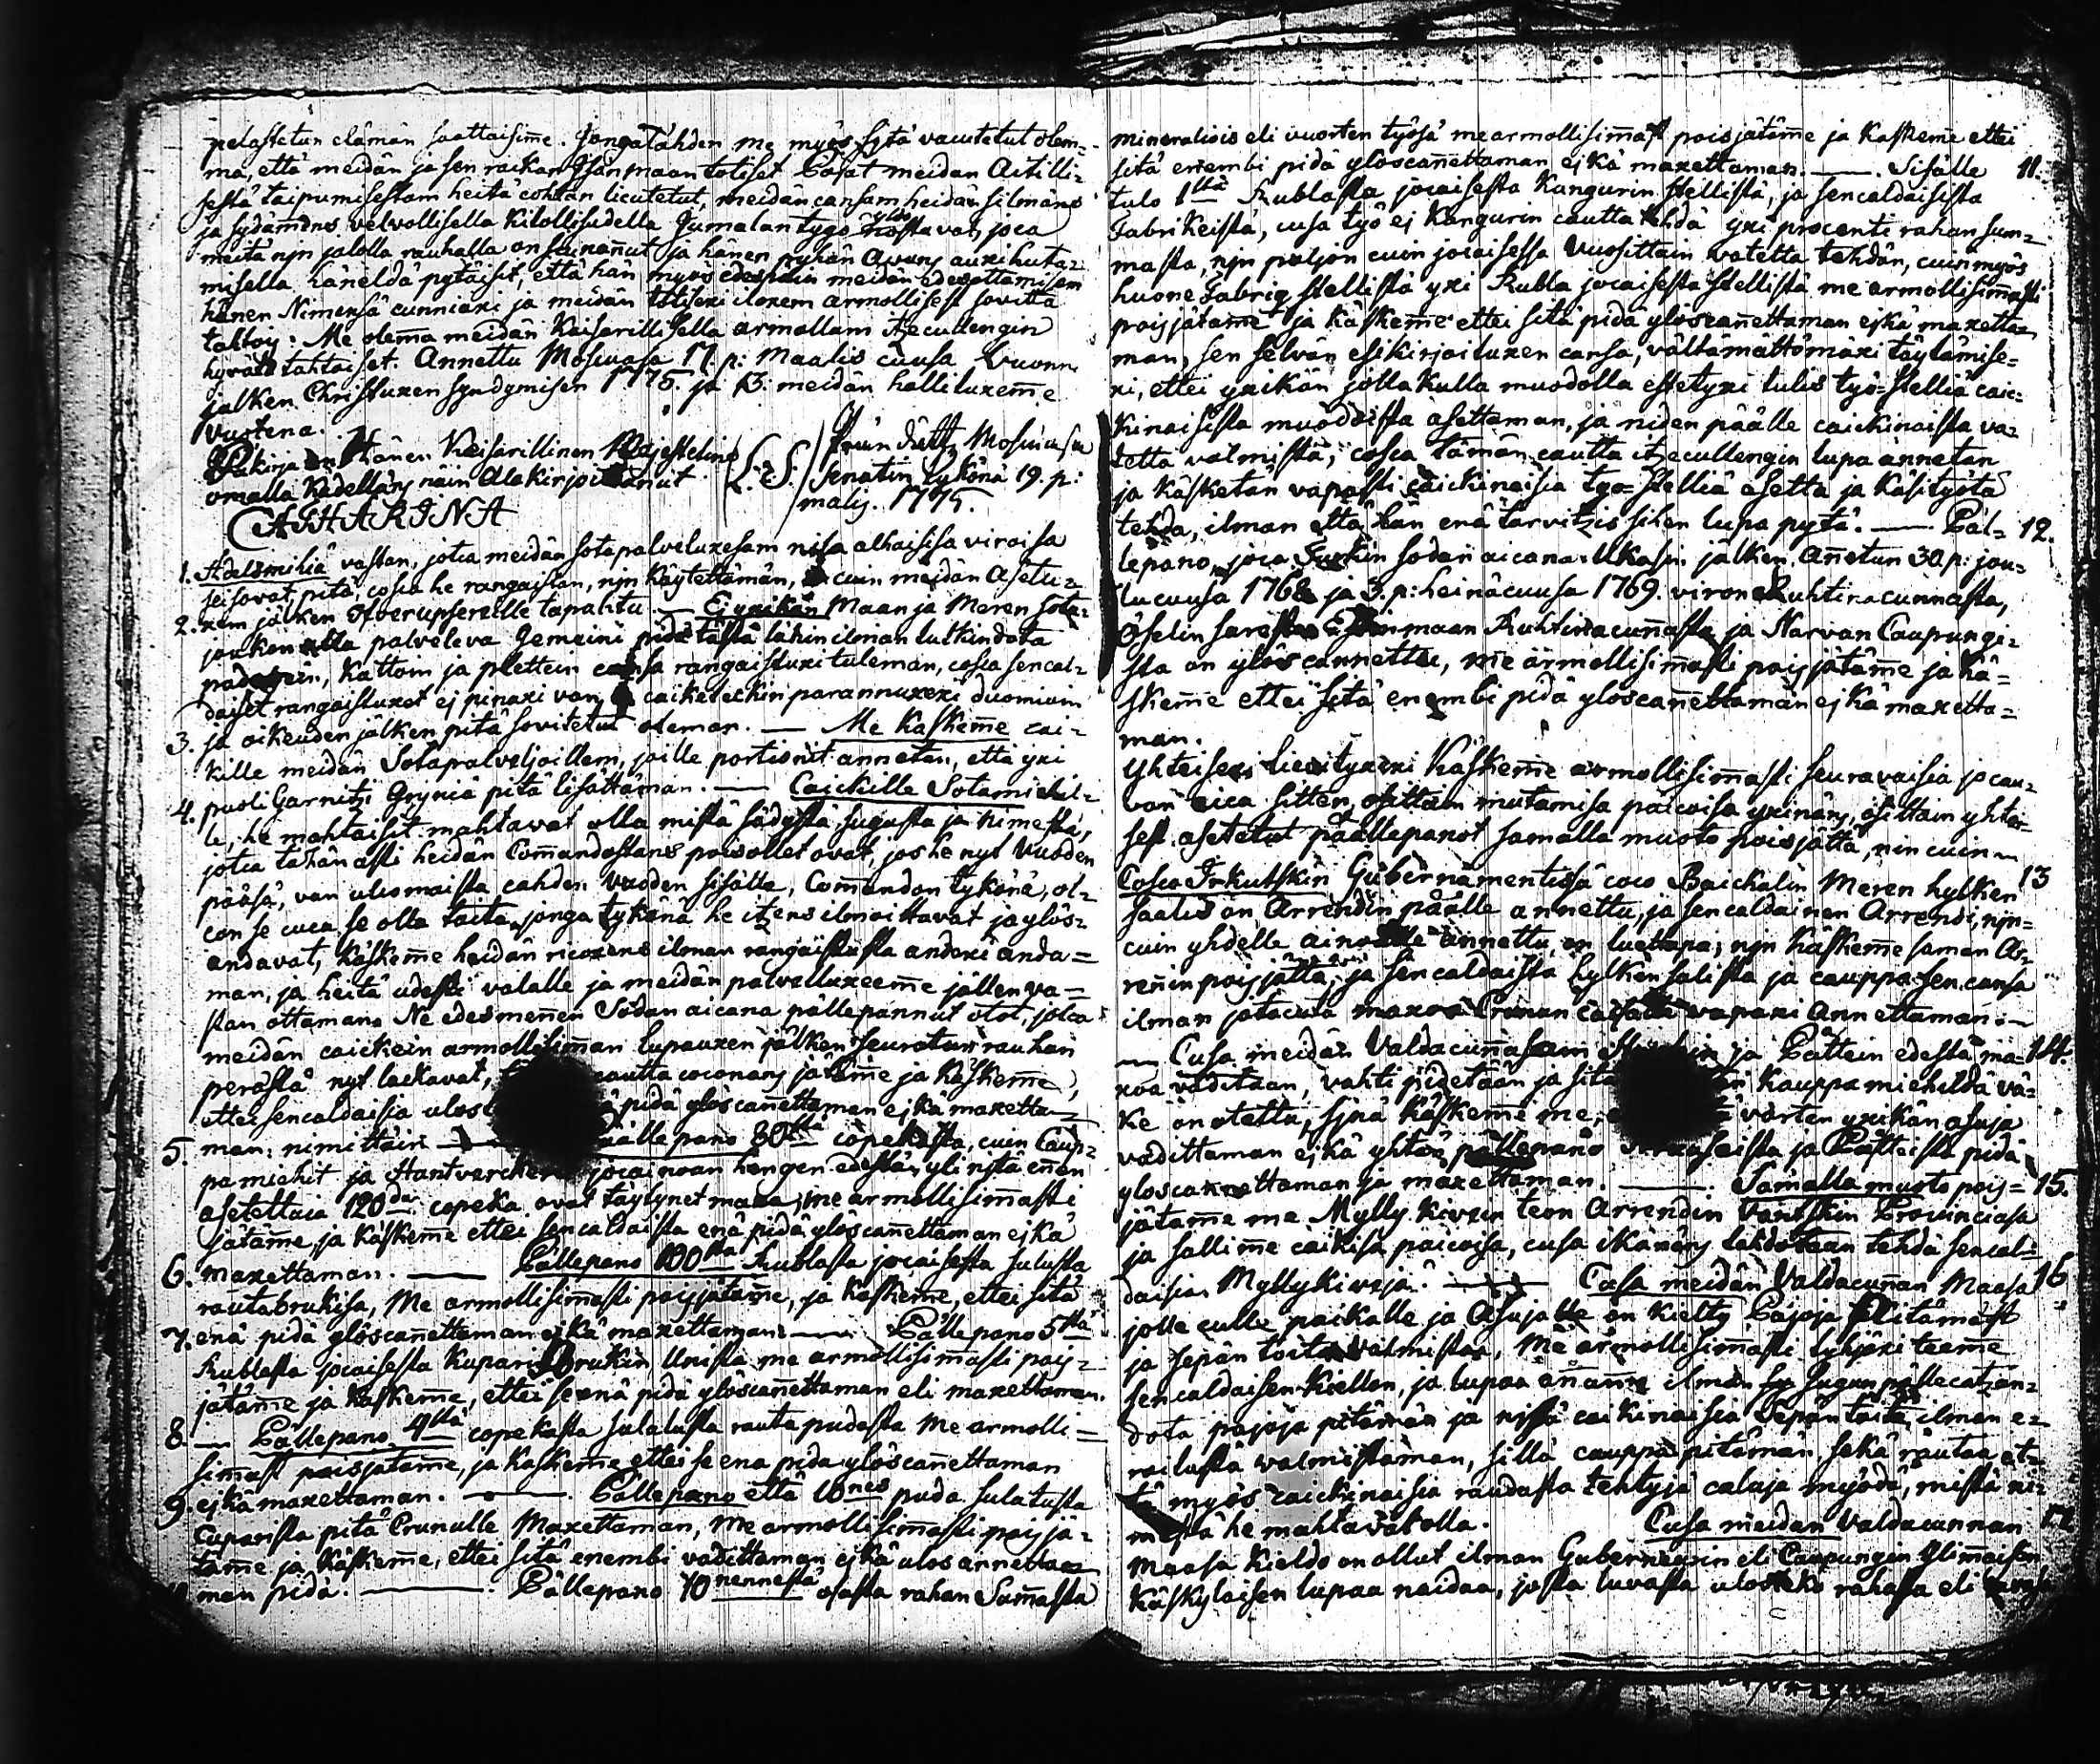 pelastetun elämän saattaisim̄e. Jongatähden me myös sitä vacutetut olem=
ma, että meidän ja sen rackan Isän maan totiset Lapset meidän Äitilli=
sestä taipumisestam heitä cohtan licutetut, meidän cansam heidän silmäns
ja sydämens velvollisella kitollisudella Jumalan tygö ylös nostavat, joca
meitä nijn jalolla rauhalla on seunan̄ut ja hänen pyhän Avuns auxihuta=
misella häneldä pytäisit, että hän myös edespäin meidän edesottamisem
hänen Nimensä cunniaxi ja meidän totisexi iloxem armollisest sovitta
tahtois. Me olem̄a meidän Keisarillisella armollam itzecullengin
hyvät tahtoiset. Annettu Moscuasa 17 p: Maalis cuusa Vuonna
jälken Christuxen syndymisen 1775. ja 13. meidän hallituxem̄e
vuotena.
Pääkirja on Hänen Keisarillinen Majestetins
omalla Kädelläns näin Alakirjoittanut.
CATHARINA
(L.S.)
Senatin tykönä 19. p:
malis. 1775.
1. Adelsmihiä vastan, jotca meidän sotapalveluxesam nisä alhaisisa viroisa
seisovat, pitä, cosca he rangaistan, nijn käytettämän, cuin meidän Asetu=
xem jälken Åfverupsereille tapahtu. —
2. Ej yxikän Maan ja Meren sota=
joukon alla palveleva Gemeini pidä tästä lähin ilman tutkindota
padogein, Kattom ja plettein cansa rangaistuxi tuleman, cosca sencal=
daiset rangaistuxet ej pinaxi van caiketeckin parannuxexi duomion
3. ja oikeuden jälken pitä sovitetut oleman. — Me Käskem̄e cai=
kille meidän Sotapalveljoillem, joille portionit annetan, että yxi
puoli Garnitzi Gryniä pitä lisättämän. —
4. Caickille Sotamiehil=
le, he mahtaisit mahtavat olla mistä sädystä sugusta ja nimestä,
jotca tähän asti heidän Com̄andostans poisollet ovat, jos he nyt Vuoden
pääsä, van ulcomaista cahden Vuoden sisälla, Com̄andon tykönä, ol=
con se cuca se olla taita, jonga tykönä he itzens ilmoittavat ja ylös=
andavat, käskem̄e heidän ricoxens ilman rangaistusta andexi anda=
man, ja heitä udesti valalle ja meidän palvelluxeem̄e jällen va=
stan ottaman. Ne edesmen̄en Sodan aicana pällepannut otot, jotca
meidän caickein armollisim̄an lupauxen jälken seuratun rauhan
perästä nyt lackavat, cautta coconans jätäm̄e ja käskem̄e,
ettei sencaldaisia ulos pidä ylöscan̄ettaman ejkä maxetta=
5. man: nimittäin — ällepano 80stä copekasta, cuin Caup=
pamiehet ja Hantvercker jocainoan hengen edestä, yli nijtä en̄en
asetettuia 120da copeka ovat täytynet maxa, me armollisim̄asti
jätäm̄e ja käskem̄e ettei sencaldaista enä pidä ylöscan̄ettaman ejkä
6. maxettaman. — Pällepano 100sta Rublasta jocaisesta sulusta
rautabrukisa, Me armollisim̄asti poisjätäm̄e, ja käskem̄e, ettei sitä
7. enä pidä ylöscan̄ettaman ejkä maxettaman. — Pällepano 5stä
Rublasta jocaisesta Kupari Brukin Unista me armollisim̄asti pois=
jätäm̄e ja käskem̄e, ettei se enä pidä ylöscan̄ettaman eli maxettaman.
8. — Pällepano 4stä copekasta sulatusta rauta pudasta Me armolli=
sim̄ast poisjätäm̄e, ja käskem̄e ettei se enä pidä ylöscan̄ettaman
9. ejkä maxettaman. — Pällepano että 10nes puda sulatusta
Cuparista pitä Crunulle Maxettaman, Me armollisim̄asti poisjä=
täm̄e ja käskem̄e, ettei sitä enembi vadittaman ejkä ulosannetta=
man pidä. — Pällepano 10nennestä osasta rahan Sum̄asta
mineraliois eli vuorten työsä me armollisim̄ast poisjätäm̄e ja käskem̄e ettei
sitä enembi pidä ylöscan̄ettaman ejkä maxettaman. — Sisälle 11.
tulo 1stä Rublasta jocaisesta Kangurin stellistä, ja sencaldaisista
Fabrikeistä, cusa työ ej Kangurin cautta tehdä yxi procenti rahan sum=
masta, nijn paljon cuin jocaisessa Vuosittain vatetta tehdän, cuin myös
huone Fabriq stellistä yxi Rubla jocaisesta stellistä me armollisim̄asti
poisjätäm̄e ja käskem̄e ettei sitä pidä ylöscan̄ettaman ejkä maxetta=
man, sen selvän esikirjoituxen cansa, vältämättömäxi täytämise=
xi, ettei yxikän jollakulla muodolla estetyxi tulis työ-stelliä caic=
kinaisista muodoista asettaman, ja niden päälle caickinaista va=
tetta valmistä, cosca tämän cautta itzecullengin lupa annetan
ja käsketän vapasti caickinaisia työ-stelliä asetta ja käsityötä
tehdä, ilman että hän enä tarvitzis sihen lupa pytä. — Päl= 12.
lepano, joca Turkin sodan aicana Ukasin jälken an̄etun 30. p: jou=
lucuusa 1768 ja 3. p: heinäcuusa 1769. viron Ruhtinacunnasta,
Öselin saresta Estinmaan Ruhtinacun̄asta ja Narvan Caupungi=
sta on ylöscannettu, me armollisim̄asti poisjätäm̄e ja kä=
skem̄e ettei sitä enembi pidä ylöscan̄ettaman ejkä maxetta=
man.
Yhteisexi lievityxexi Käskem̄e armollisim̄asti seuravaisia jo cau=
van aica sitten, osittain mutamisa paicoisa yxinäns, osittain yhtei=
sest asetetut päällepanot samalla muoto poisjättä, nin cuin
Cosca Irkutskin Gubernamentisä coco Baickalin Meren hylken 13
saalis on Arrendin päälle annettu, ja sencaldainen Arrendi, nijn=
cuin yhdelle ainoalle annettu on luettapa, nijn käskem̄e saman Ar=
ren̄in poisjättä, ja sencaldaista hylkin salista ja cauppa sen cansa
ilman jotacuta maxoa Crunun caisalle vapaxi Annettaman. —
— Cusa meidän Valdacun̄asam ja Pättein edestä ma= 14.
xoa vaditaan, vahti pidetään ja sitä Kauppamiehildä vä=
ke on otettu, sijnä käskem̄e me, varten yxikän asuja
vadittaman ejkä yhtän pällepano ja Pätteistä pidä
ylöscannettaman ja maxettaman. — Samalla muoto pois= 15.
jätäm̄e me Mylly kivein teon Arrendin Provinciasa
ja sallim̄e caikisa paicoisa, cusa ikänäns tahdotaan tehdä sencal=
daisia Myllykiviejä. — Cusa meidän Valdacun̄an Maasa 16
jolle culle paikalle ja Asujalle on kielty Pajoja Pitämäst
ja sepän töitä valmistaa, Me armollisim̄asti tyhjäxi teem̄e
sencaldaisen kiellon, ja lupaa an̄am̄e ilman sugun pällecatzan=
dota pajoja pitämän ja nijsä caickinaisia sepän töitä, ilman e=
roitusta valmistaman, sillä cauppa pitämän sekä rautaa et=
tä myös caickinaisia raudasta tehtyjä caluja myödä, mistä ni=
mestä he mahtavat olla. Cusa meidän Valdacunnan 17
Maasa kieldo on ollut ilman Guberneurin eli Caupungin Ylim̄äisen
Käskyläisen lupaa naidaa, josta luvasta ulosteko rahasa eli